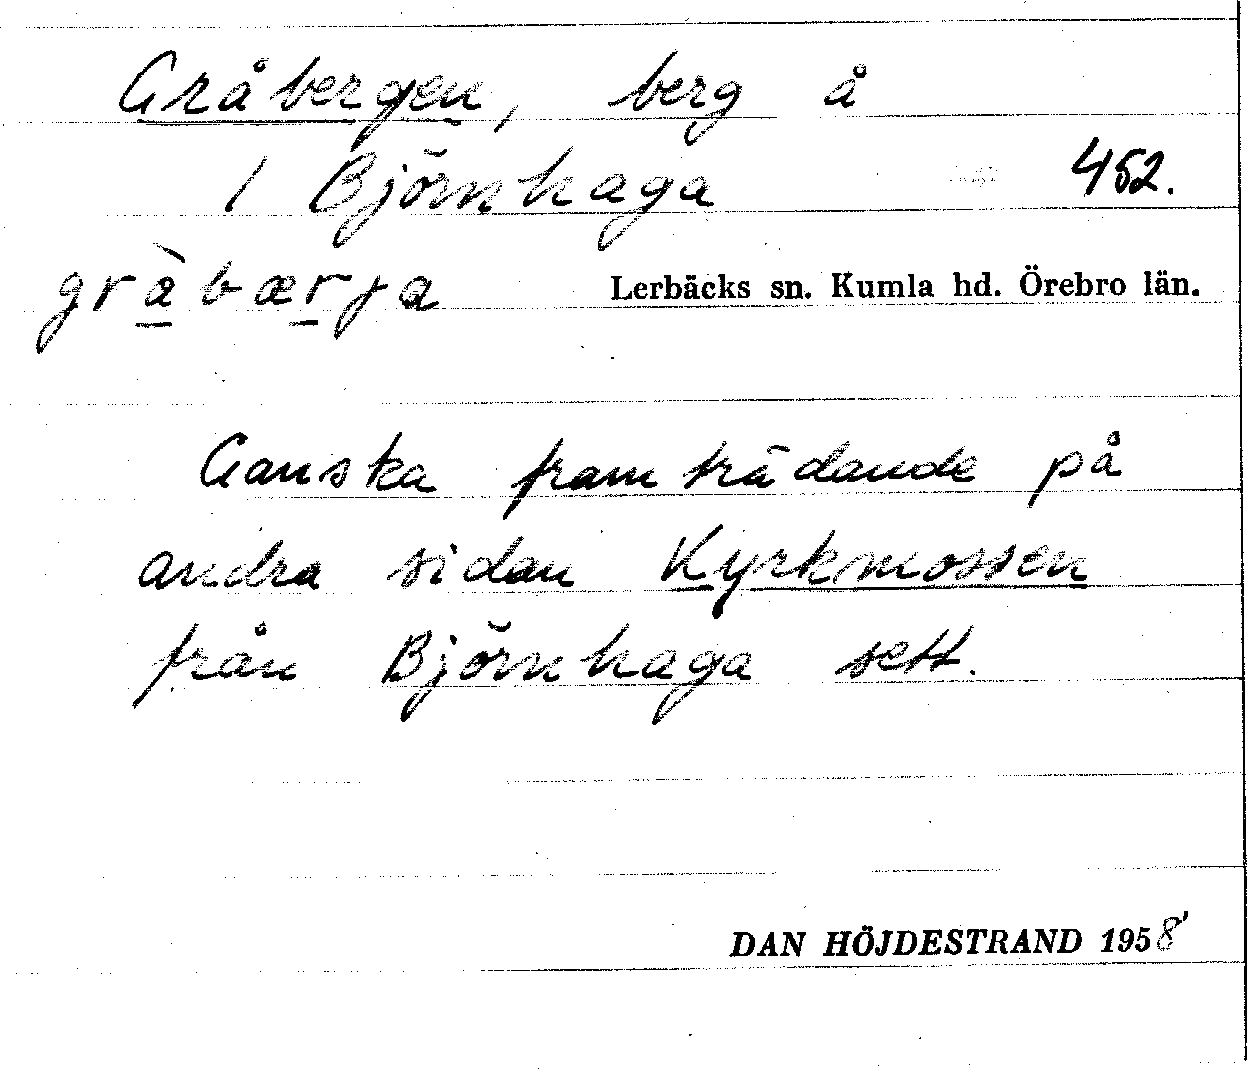 Gråbergen, berg å
1 Björnhaga 452.
gràbærja Lerbäcks sn. Kumla hd. Örebro län.
Ganska framträdande på
andra sidan Kyrkmossen
från Björnhaga sett.
DAN HÖJDESTRAND 1958